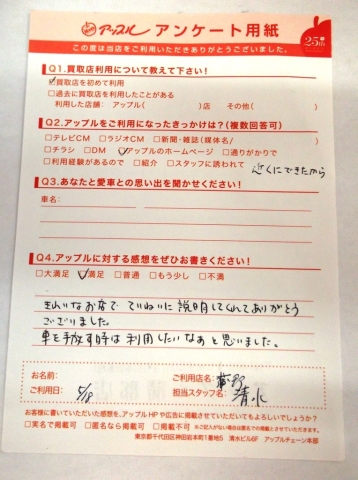 アップル アンケート用紙
25th
この度は当店をご利用いただきありがとうございました。
Q1.買取店利用について教えて下さい!
☑買取店を初めて利用
□過去に買取店を利用したことがある
利用した店舗: アップル( )店 その他( )
Q2.アップルをご利用になったきっかけは?(複数回答可)
□テレビCM □ラジオCM □新聞・雑誌(媒体名/ )
□チラシ □DM ☑アップルのホームページ □通りがかりで
□利用経験があるので □紹介 □スタッフに誘われて 近くにできたから
Q3.あなたと愛車との思い出を聞かせください!
車名:
Q4.アップルに対する感想をぜひお書きください!
□大満足 ☑満足 □普通 □もう少し □不満
きれいなお店で ていねいに説明してくれてありがとう
ございました。
車を手放す時は利用したいなあと思いました。
お名前:
ご利用店名:
ご利用日: 5/8
担当スタッフ名: 清水
お客様に書いていただいた感想を、アップルHPや広告に掲載させていただいてもよろしいでしょうか?
□実名で掲載可 □匿名なら掲載可 □掲載不可 ※ご記入がない場合は匿名での掲載とさせていただきます。
東京都千代田区神田岩本町1番地5 清水ビル6F アップルチェーン本部